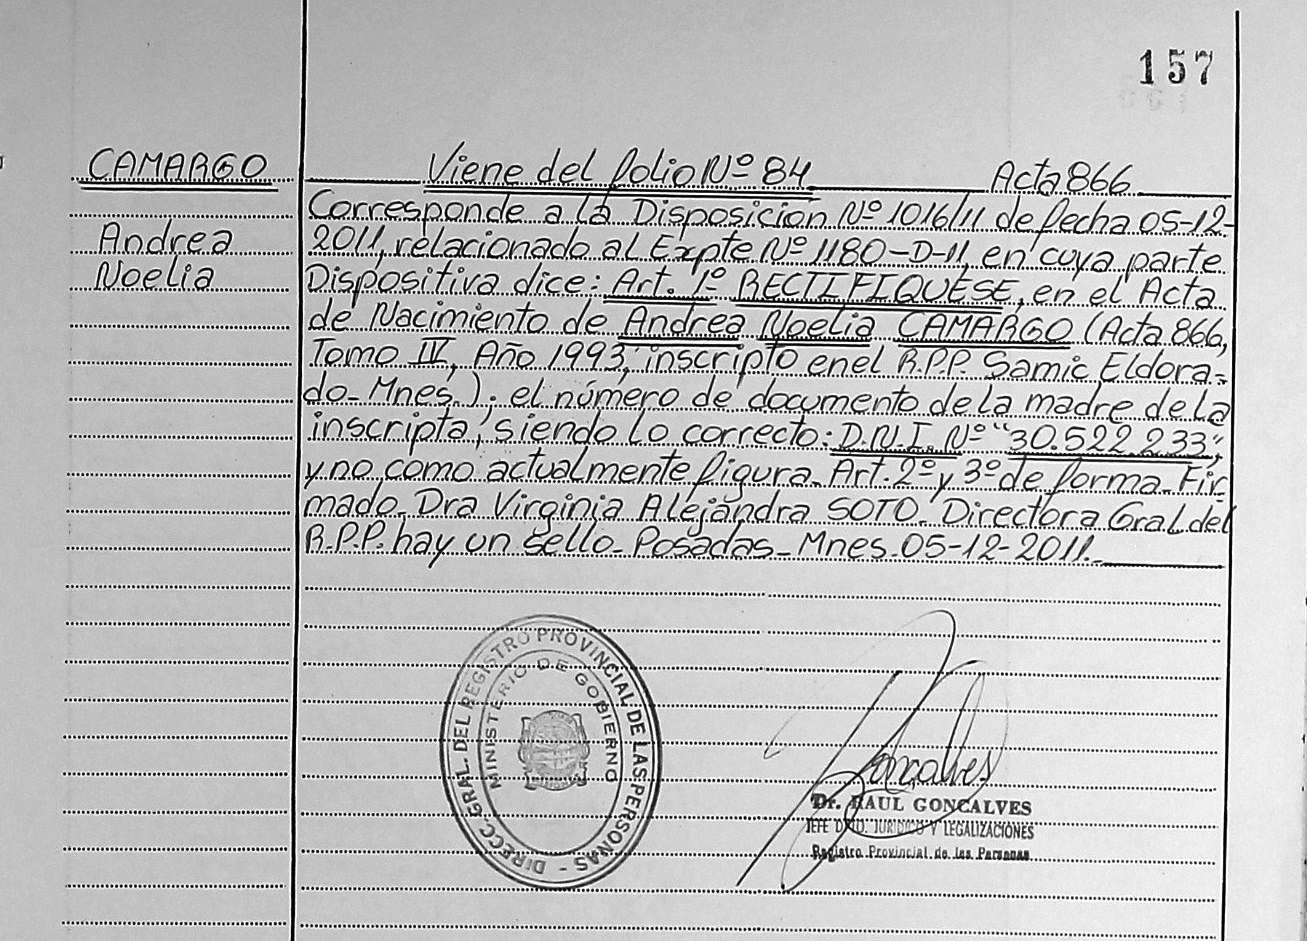 157
CAMARGO
Andrea
Noelia
Viene del folio Nº 84 Acta 866
Corresponde a la Disposicion Nº 1016/11 de fecha 05-12-
2011, relacionado al Expte Nº 1180-D-11, en cuya parte
Dispositiva dice: Art. 1º RECTIFIQUESE, en el Acta
de Nacimiento de Andrea Noelia CAMARGO (Acta 866,
Tomo IV, Año 1993, inscripto en el R.P.P. Samic Eldora-
do-Mnes.); el número de documento de la madre de la
inscripta, siendo lo correcto: D.N.I. Nº "30.522.233",
y no como actualmente figura. Art. 2º y 3º de forma-Fir-
mado. Dra Virginia Alejandra SOTO. Directora Gral del
R.P.P. hay un sello-Posadas-Mnes. 05-12-2011.
DIRECC. GRAL. DEL REGISTRO PROVINCIAL DE LAS PERSONAS -
MINISTERIO DE GOBIERNO
Goncalves
Dr. RAUL GONCALVES
JEFE JURIDICO Y LEGALIZACIONES
Registro Provincial de las Personas